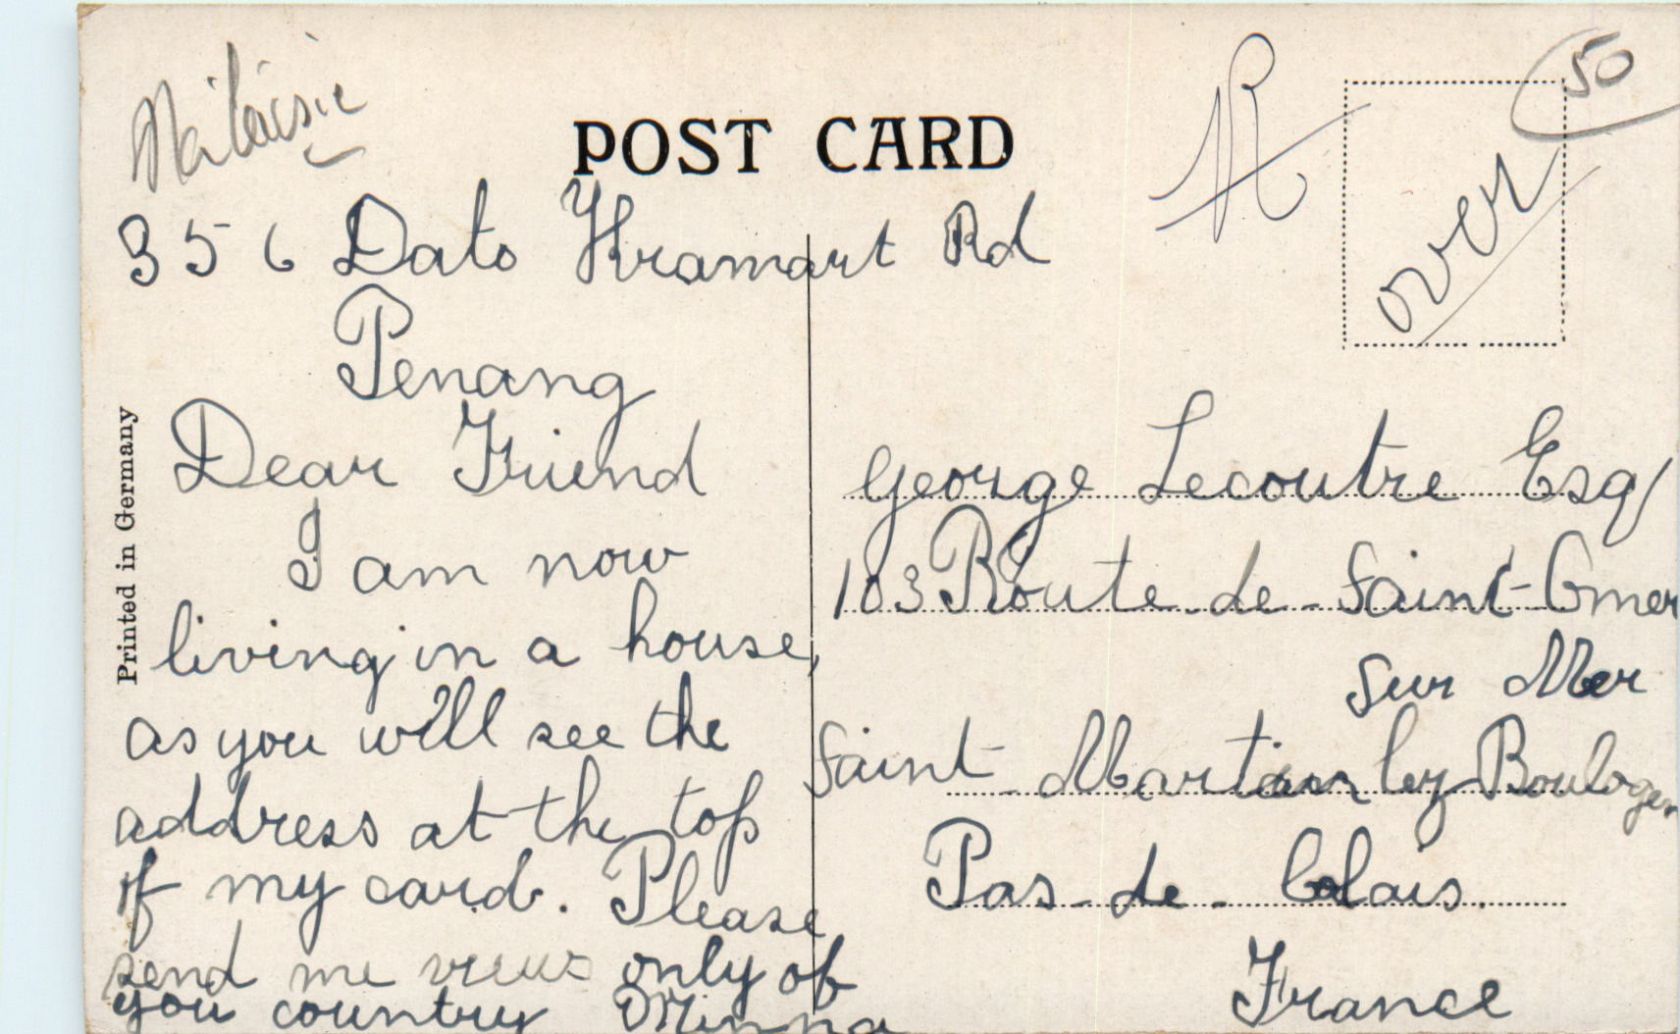 Malaisie
POST CARD
50
over
356 Dato Kramart Rd
Penang
Dear Friend
I am now
living in a house,
as you will see the
address at the top
of my card. Please
send me views only of
you country Minna
Printed in Germany
George Lecoutre Esq/
103 Route-de-Saint-Omer
sur Mer
Saint-Martin ley Boulogen
Pas-de-Calais.
France